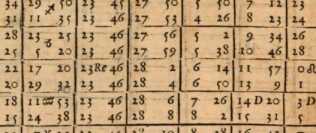 34 29 ♐ 50 23 45 27 50 5 50 7 12 23
31 11 35 23 46 27 53 4 26 8 23 24
28 23 25 23 46 27 56 5 2 9 34 26
25 5 ♑ 20 23 46 27 59 5 38 10 46 28
22 17 20 23 Re 46 28 2 6 14 11 57 0
20 29 32 23 46 28 4 6 50 13 9 1
18 11 ♒ 53 23 46 28 6 7 26 14 D 20 3 D
15 24 38 23 46 28 8 8 2 15 31 5